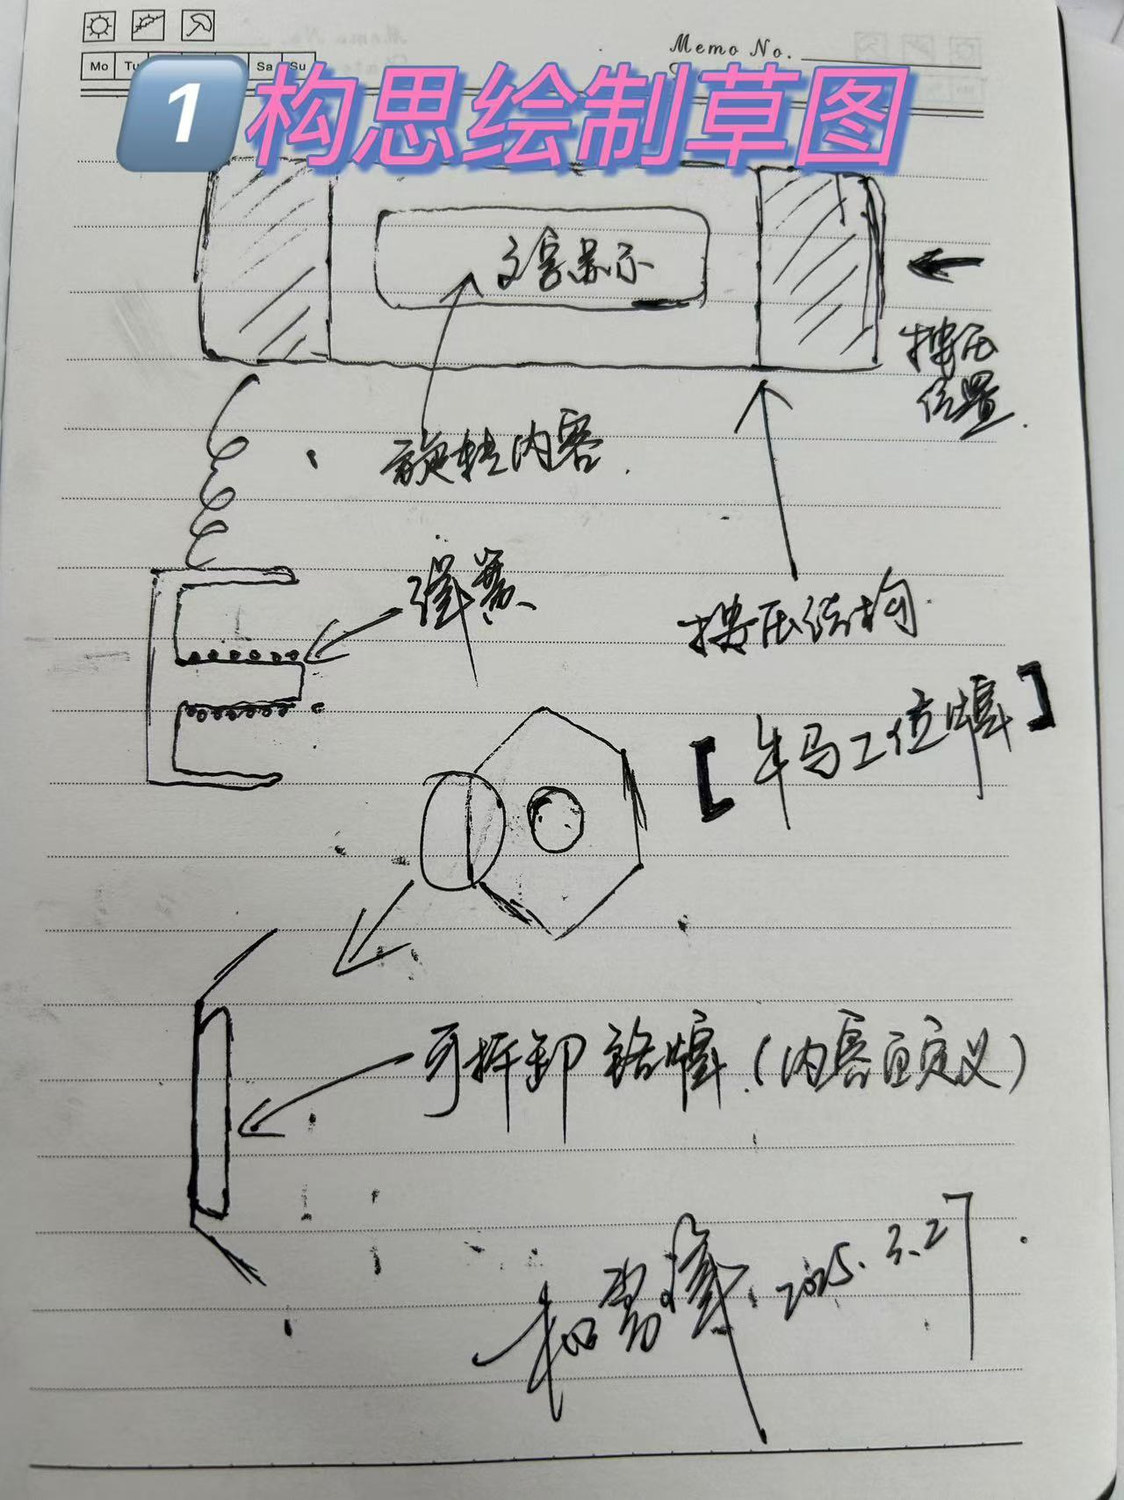 Memo No.
Mo Tu Sa Su
1 构思绘制草图
文字显示
按压
位置
旋转内容
弹簧
按压结构
【牛马工位牌】
可拆卸铭牌(内容自定义)
2025.3.27